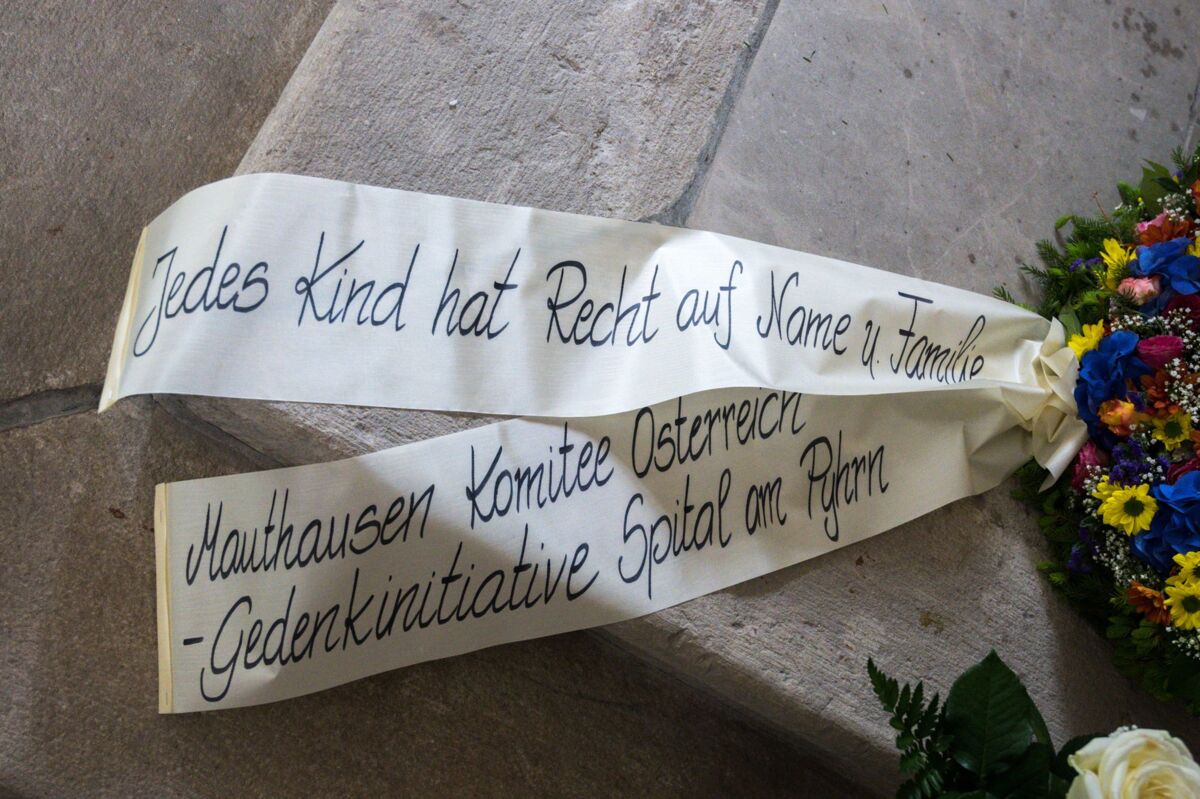 Jedes Kind hat Recht auf Name u. Familie
Mauthausen Komitee Österreich
-Gedenkinitiative Spital am Pyhrn